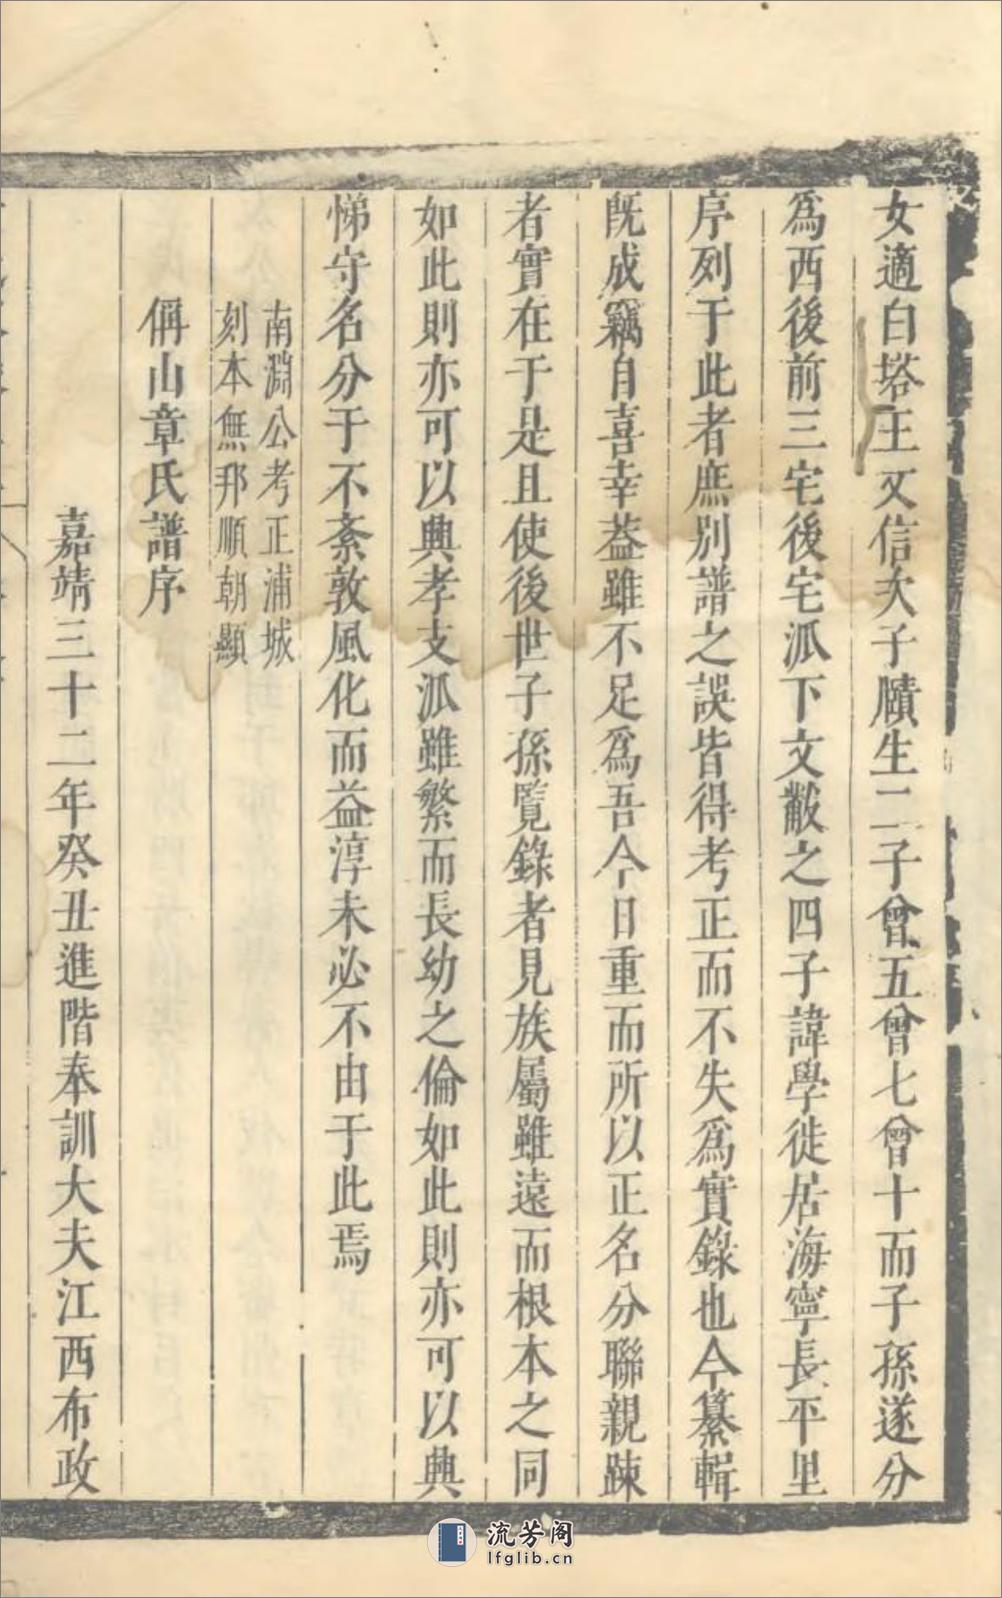 女適白塔王文信次子賾生二子曾五曾七曾十而子孫遂分
為西後前三宅後宅派下文黻之四子諱學徙居海寧長平里
序列于此者庶别譜之誤皆得考正而不失為實錄也今纂輯
既成竊自喜幸葢雖不足為吾今日重而所以正名分聯親踈
者實在于是且使後世子孫覧錄者見族屬雖遠而根本之同
如此則亦可以興孝支派雖繁而長幼之倫如此則亦可以興
悌守名分于不紊敦風化而益淳未必不由于此焉
南淵公考正浦城
刻本無邦順朝顯
偁山章氏譜序
嘉靖三十二年癸丑進階奉訓大夫江西布政
流芳阁
lfglib.cn